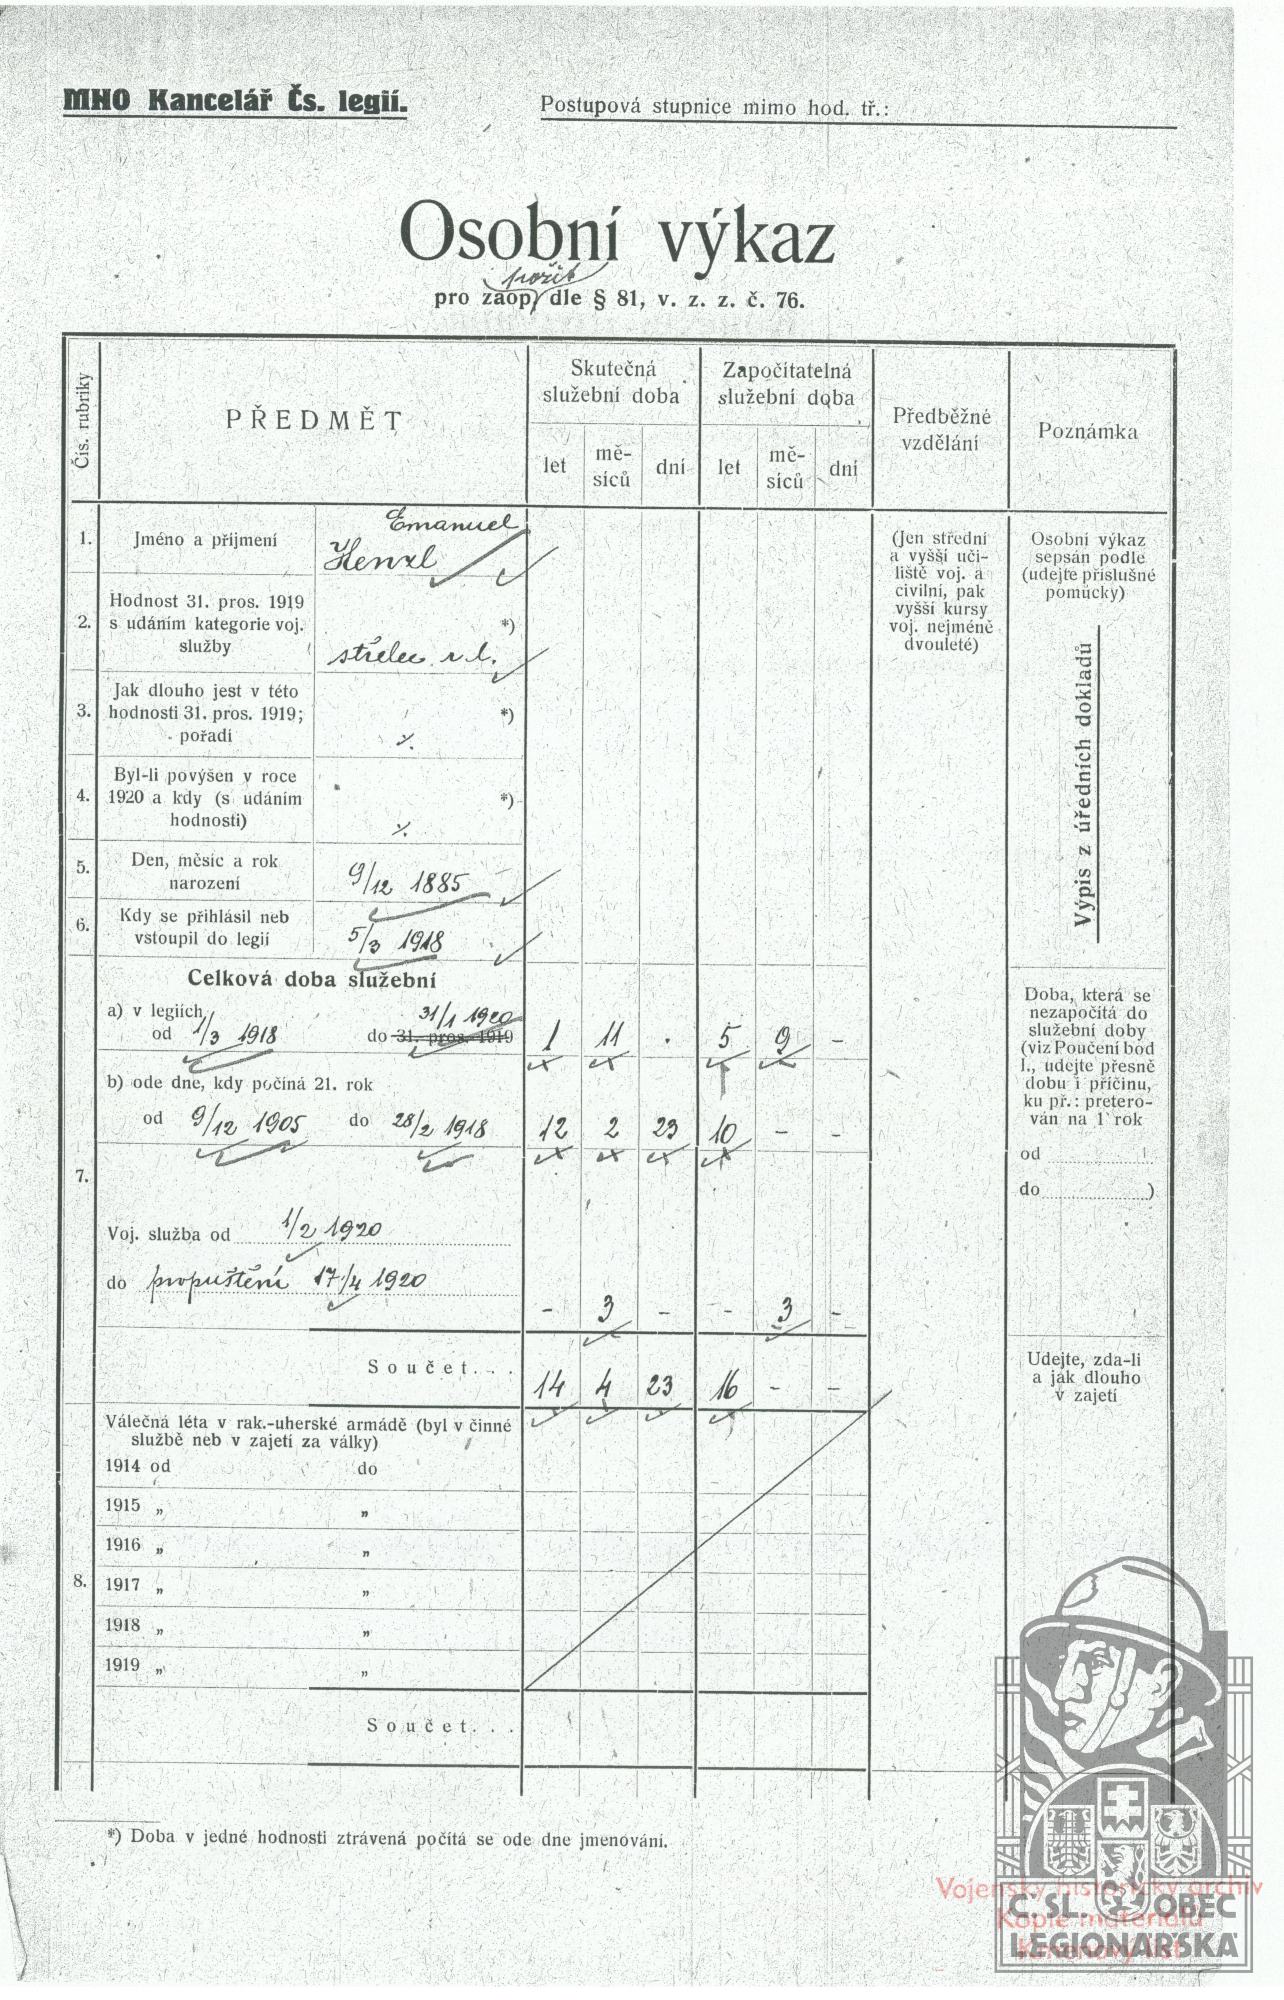 MNO Kancelář Čs. legií.
Postupová stupnice mimo hod. tř.:
Osobní výkaz
pro zaop. dle § 81, v. z. z. č. 76.
Čís. rubriky
PŘEDMĚT
Skutečná
služební doba
Započítatelná
služební doba
Předběžné
vzdělání
Poznámka
let
mě-
síců
dní
let
mě-
síců
dní
1.
Jméno a příjmení
Emanuel
Henzl
(Jen střední
a vyšší uči-
liště voj. a
civilní, pak
vyšší kursy
voj. nejméně
dvouleté)
Osobní výkaz
sepsán podle
(udejte příslušné
pomůcky)
Výpis z úředních dokladů
2.
Hodnost 31. pros. 1919
s udáním kategorie voj.
služby
*)
střelec r. l.
3.
Jak dlouho jest v této
hodnosti 31. pros. 1919;
pořadí
*)
4.
Byl-li povýšen v roce
1920 a kdy (s udáním
hodnosti)
*)
5.
Den, měsíc a rok
narození
9/12 1885
6.
Kdy se přihlásil neb
vstoupil do legií
5/3 1918
7.
Celková doba služební
a) v legiích
31/1 1920
od 1/3 1918 do 31. pros. 1919
1 11 . 5 9 -
b) ode dne, kdy počíná 21. rok
od 9/12 1905 do 28/2 1918
12 2 23 10 - -
Voj. služba od 1/2 1920
do propuštění 17/4 1920
- 3 - - 3 -
Součet...
14 4 23 16 - -
Doba, která se
nezapočítá do
služební doby
(viz Poučení bod
I., udejte přesně
dobu i příčinu,
ku př.: preterо-
ván na 1 rok
od
do )
Udejte, zda-li
a jak dlouho
v zajetí
8.
Válečná léta v rak.-uherské armádě (byl v činné
službě neb v zajetí za války)
1914 od do
1915 „ „
1916 „ „
1917 „ „
1918 „ „
1919 „ „
Součet...
*) Doba v jedné hodnosti ztrávená počítá se ode dne jmenování.
Vojenský historický archiv
Kopie materiálu
Kmenový list
Č. SL. OBEC
LEGIONÁŘSKÁ